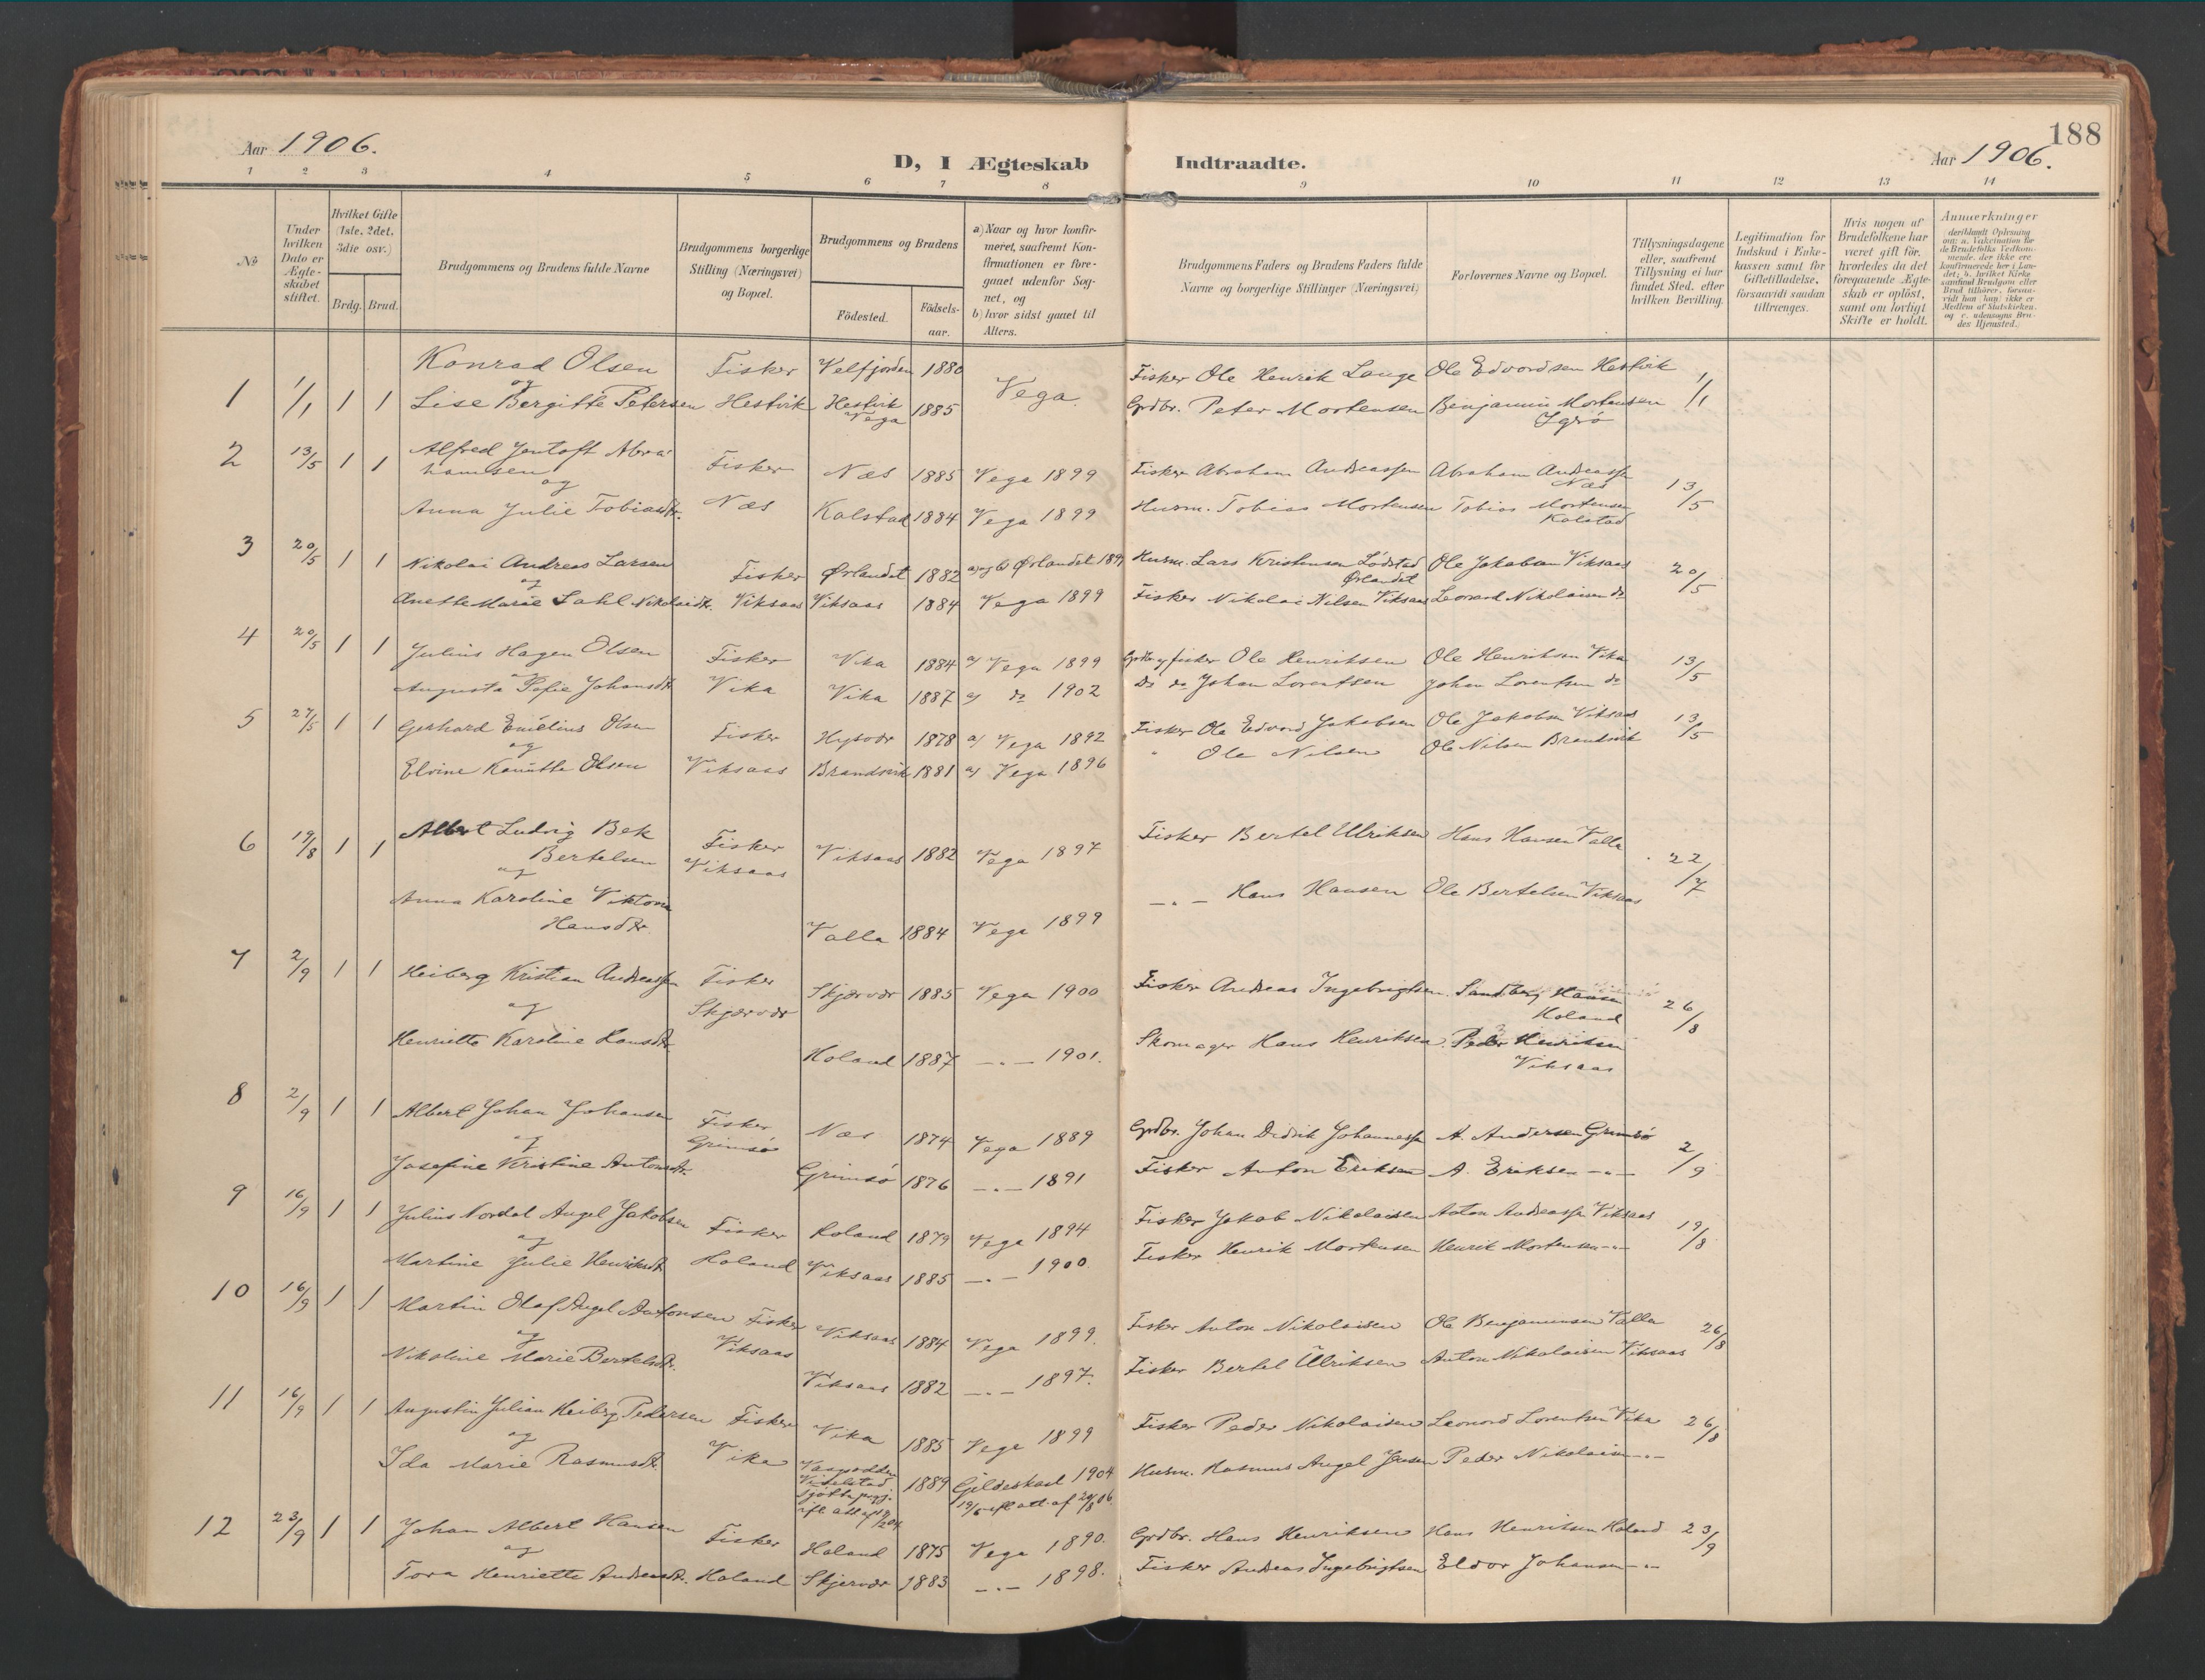 188
Aar 1906.
D, I Ægteskab Indtraadte.
Aar 1906.
1 2 3 4 5 6 7 8 9 10 11 12 13 14
№
Under hvilken Dato er Ægteskabet stiftet.
Hvilket Gifte (1ste, 2det, 3die osv.)
Brdg. Brud.
Brudgommens og Brudens fulde Navne
Brudgommens borgerlige Stilling (Næringsvei) og Bopæl.
Brudgommens og Brudens
Födested. Födselsaar.
a) Naar og hvor konfirmeret, saafremt Konfirmationen er foregaaet udenfor Sognet, og
b) hvor sidst gaaet til Alters.
Brudgommens Faders og Brudens Faders fulde Navne og borgerlige Stillinger (Næringsvei)
Forlovernes Navne og Bopæl.
Tillysningsdagene eller, saafremt Tillysning ei har fundet Sted, efter hvilken Bevilling.
Legitimation for Indskud i Enkekassen samt for Giftetilladelse, forsaavidt saadan tiltrænges.
Hvis nogen af Brudefolkene har været gift för, hvorledes da det foregaaende Ægteskab er oplöst, samt om lovligt Skifte er holdt.
Anmerkninger
1 1/1 1 1 Konrad Olsen Fisker Velfjorden 1880 Vega Fisker Ole Henrik Lange Ole Edvardsen Hestvik 1/1
og
Lise Bergitte Petersen Hestvik Hestvik Vega 1885 Grdbr. Peter Mortensen Benjamin Mortensen
2 13/5 1 1 Alfred Jentoft Abrahamsen Fisker Næs 1885 Vega 1899 Fisker Abraham Andreassen Abraham Andreassen Næs 13/5
og
Anna Julie Tobiasdtr. Næs Kalstad 1884 Vega 1899 Husm. Tobias Mortensen Tobias Mortensen Kalstad
3 20/5 1 1 Nikolai Andreas Larsen Fisker Ørlandet 1882 a) og b) Ørlandet Husm. Lars Kristensen Ørlandet Ole Jakobsen Viksaas 20/5
og
Anette Marie Dahl Nikolaidtr. Viksaas Viksaas 1884 Vega 1899 Fisker Nikolai Nilsen Viksaas Leonard Nikolaisen do
4 20/5 1 1 Julius Hagen Olsen Fisker Vika 1884 a) Vega 1899 Grdbr og fisker Ole Henriksen Ole Henriksen Vika 13/5
og
Augusta Sofie Johansdtr Vika Vika 1887 a) do 1902 Do do Johan Lorentsen Johan Lorentsen do
5 27/5 1 1 Gerhard Emelius Olsen Fisker Hysvær 1878 a) Vega 1892 Fisker Ole Edvard Jakobsen Ole Jakobsen Viksaas 13/5
og
Elvine Olsen Viksaas Brandsvik 1881 a) Vega 1896 " Ole Nilsen Ole Nilsen Brandsvik
6 19/8 1 1 Albert Ludvig Bek Bertelsen Fisker Viksaas Viksaas 1882 Vega 1897 Fisker Bertel Ulriksen Hans Hansen Valla 22/7
og
Anna Karoline Viktoria Hansdtr. Valla 1884 Vega 1899 -"- Hans Hansen Ole Bertelsen Viksaas
7 2/9 1 1 Heiberg Kristian Andreassen Fisker Skjærvær Skjærvær 1885 Vega 1900 Fisker Andreas Ingebrigtsen Sandberg Hansen Holand 26/8
og
Henriette Karoline Hansdtr. Holand 1887 -"- 1901. Skomager Hans Henriksen. Peder Henriksen Viksaas
8 2/9 1 1 Albert Johan Johansen Fisker Grimsø Næs 1874 Vega 1889 Grdbr. Johan Didrik Johannessen A. Andersen Grimsø 2/9
og
Josefine Kristine Antonsdtr. Grimsø 1876 -"- 1891 Fisker Anton Eriksen A. Eriksen -"-
9 16/9 1 1 Julius Nordal Angel Jakobsen Fisker Holand 1879 Vega 1894 Fisker Jakob Nikolaisen Anton Andreassen Viksaas 19/8
og
Martine Julie Henriksdtr. Holand Viksaas 1885 -"- 1900. Fisker Henrik Mortensen Henrik Mortensen -"-
10 16/9 1 1 Martin Olaf Angel Antonsen Fisker Viksaas Viksaas 1884 Vega 1899. Fisker Anton Nikolaisen Ole Benjaminsen Valla 26/8
og
Nikoline Marie Bertelsdtr. Viksaas 1882 -"- 1897. Fisker Bertel Ulriksen Anton Nikolaisen Viksaas
11 16/9 1 1 Augustin Julian Heiberg Pedersen Fisker Vika 1885 Vega 1899 Fisker Peder Nikolaisen Leonord Lorentsen Vika 26/8
og
Ida Marie Rasmusdtr. Vika 1889 Gildeskaal 1904 Husm. Rasmus Angel Jensen Peder Nikolaisen -"-
12 23/9 1 1 Johan Albert Hansen Fisker Holand 1875 Vega 1890. Grdbr. Hans Henriksen Hans Henriksen Holand 23/9
og
Tora Henriette Andreasdtr. Holand Skjervær 1883 -"- 1898. Fisker Andreas Ingebrigtsen Eldor Johansen -"-